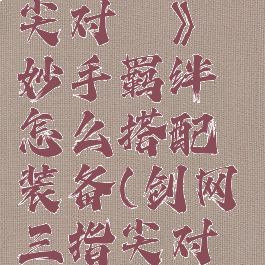 尖对》
妙手羁绊
怎么搭配
装备(剑网
三指尖对